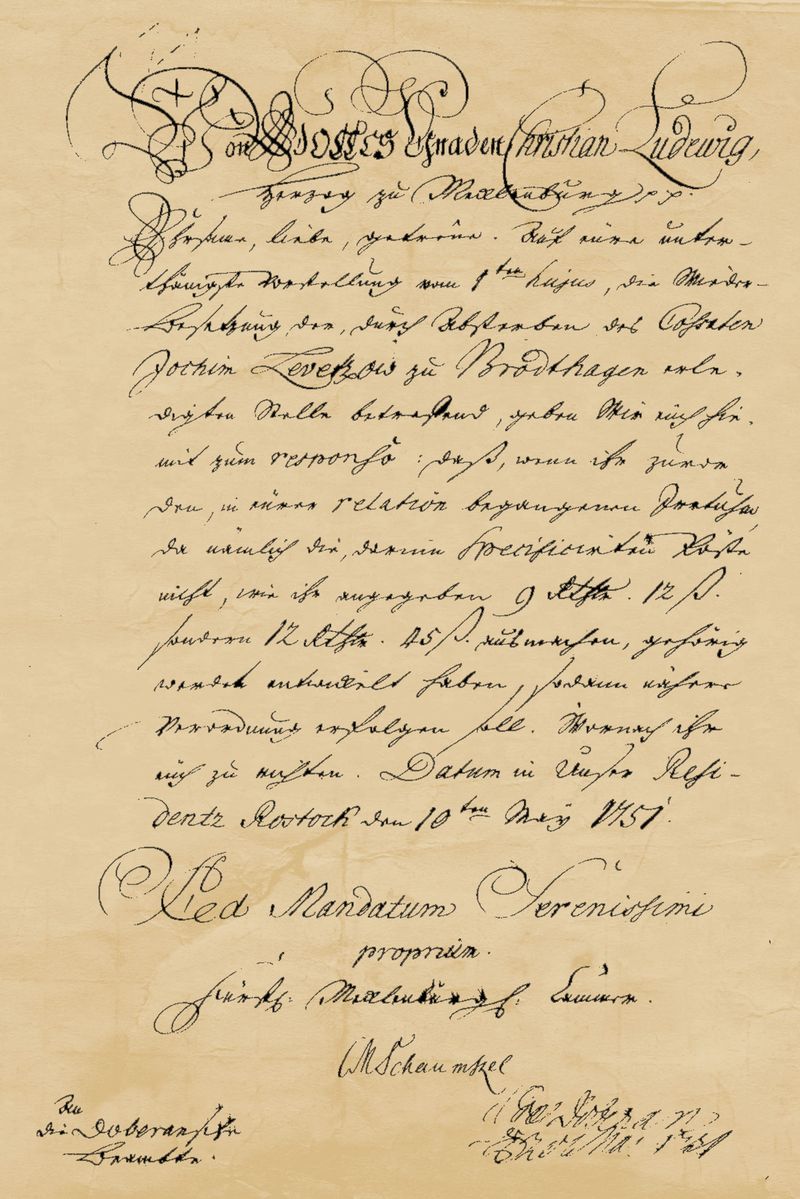 Von Gottes Gnaden Christian Ludewig,
Herzog zu Mecklenburg pp.
Ehrsame, liebe, getreue. Auf eure unter-
thänigste Vorstellung vom 1ten hujus, die Wieder-
besetzung der, durch Absterben des Cossaten
Jochim Levetzow zu Brodthagen erle-
digten Stelle betreffend, geben Wir euch hie-
mit zum responso: daß, wenn ihr zuvor
den, in eurer relation begangenen Irrtuhm,
da nämlich die, darinn specificirten Pöste
nicht, wie ihr angegeben 9 Rthlr. 12 ß.
sondern 12 Rthlr. 45 ß. ausmachen, gehörig
werdet entwickelt haben, sodann nähere
Verordnung erfolgen soll. Wornach ihr
euch zu richten. Datum in Unser Resi-
dentz Rostock den 10ten May 1751.
Ad Mandatum Serenissimi
proprium.
Fürstl: Mecklenburgs: Cammer.
An
die Doberansche
Beamte.